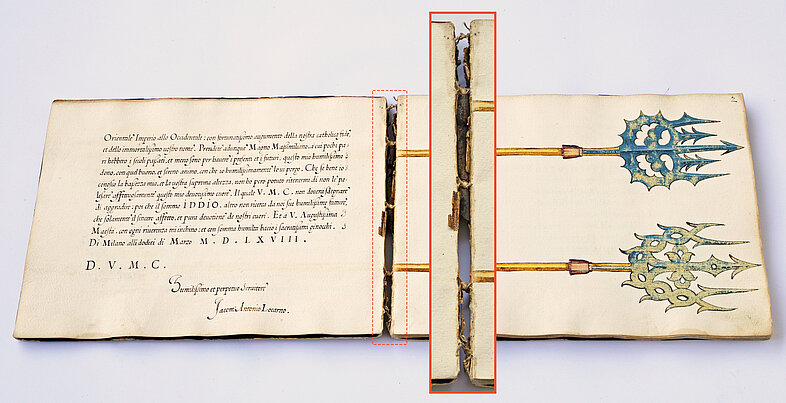 Orientale Imperio allo Occidentale: con fortunatissimo augumento della nostra catholica fede,
et dello immortalissimo vostro nome. Prendera adunque Magno Massimiliano, a cui pochi pa-
ri hebbero i secoli passati, et meno sono per havere i presenti et i futuri, questo mio humilissimo
dono, con quel buono, et sereno animo, con che io humilissimamente lo vi porgo. Che se bene io
conosco la bassezza mia, et la vostra suprema altezza, non ho però potuto ritenermi di non le pa-
lesare affettuosamente questo mio devotissimo cuore. Il quale V. M. C. non dovera sdegnare
di aggradire: poi che il sommo IDDIO, altro non ricerca da noi sue humilissime fatture,
che solamente il sincero affetto, et pura devotione de nostri cuori. Et a V. Augustissima
Maesta, con ogni riverenza mi inchino; et con somma humiltà bacio i sacratissimi ginocchi.
Di Milano alli dodici di Marzo M. D. LXVIII.
D. V. M. C.
Humilissimo et perpetuo Servitore
Jacom Antonio Locarno.
2